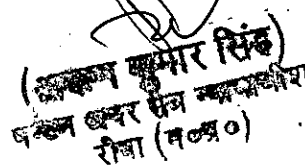 ( कुमार सिंह)
अपर सत्र न्यायाधीश
रीवा (म०प्र०)